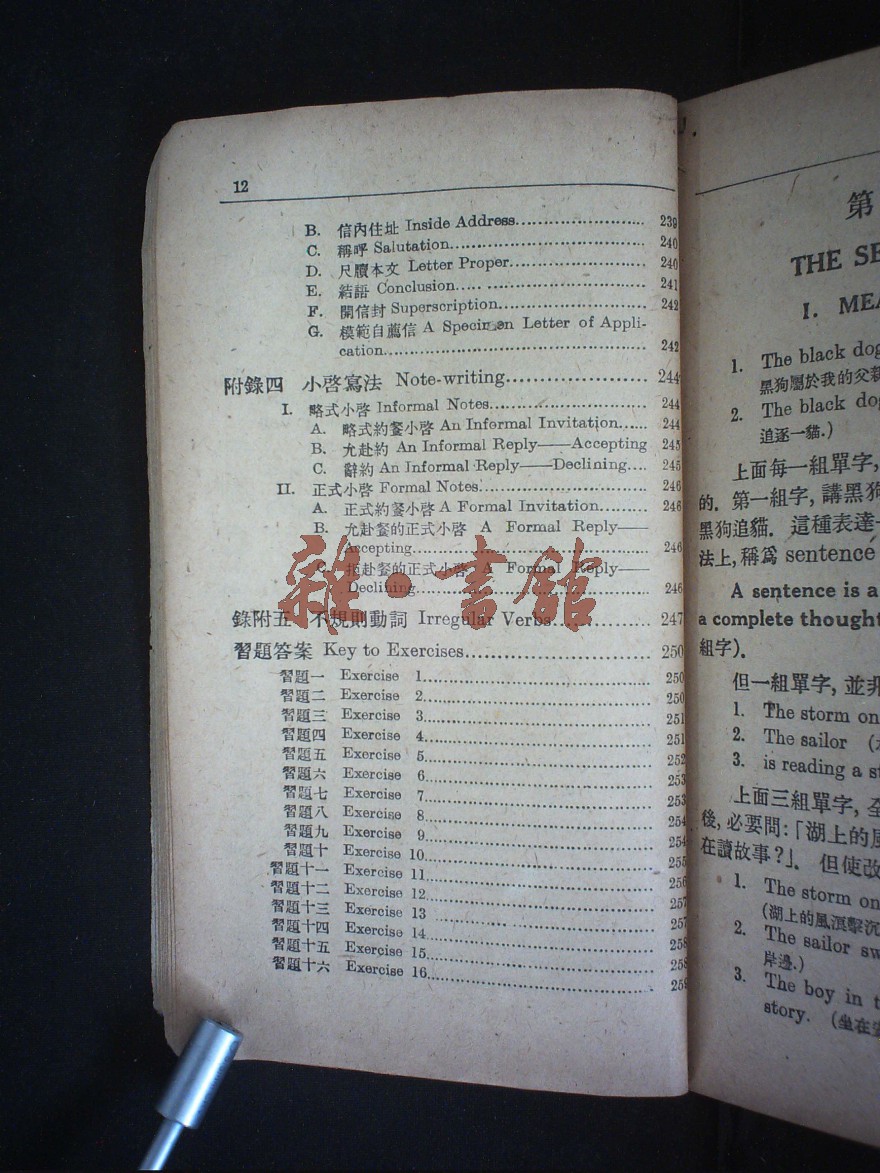 12
B. 信內住址 Inside Address........................ 239
C. 稱呼 Salutation........................ 240
D. 尺牘本文 Letter Proper........................ 240
E. 結語 Conclusion..... ........................ 241
F. 開信封 Superscription........................ 242
G. 模範自薦信 A Specimen Letter of Appli-
cation........................ 242
附錄四 小啓寫法 Note-writing........................ 244
I. 略式小啓 Informal Notes........................ 244
A. 略式約餐小啓 An Informal Invitation...... 244
B. 允赴約 An Informal Reply——Accepting 245
C. 辭約 An Informal Reply——Declining.... 245
II. 正式小啓 Formal Notes........................ 246
A. 正式約餐小啓 A Formal Invitation......... 246
B. 允赴餐的正式小啓 A Formal Reply——
Accepting........................ 246
C. 拒赴餐的正式小啓 A Formal Reply——
Declining........................ 246
雜·書館
錄附五 不規則動詞 Irregular Verbs............... 247
習題答案 Key to Exercises........................ 250
習題一 Exercise 1........................ 250
習題二 Exercise 2........................ 250
習題三 Exercise 3........................ 251
習題四 Exercise 4........................ 251
習題五 Exercise 5........................ 252
習題六 Exercise 6........................ 253
習題七 Exercise 7........................ 253
習題八 Exercise 8........................ 254
習題九 Exercise 9........................ 254
習題十 Exercise 10........................ 255
習題十一 Exercise 11........................ 256
習題十二 Exercise 12........................ 257
習題十三 Exercise 13........................ 257
習題十四 Exercise 14........................ 258
習題十五 Exercise 15........................ 258
習題十六 Exercise 16........................ 259
第
THE SE
I. MEA
1. The black dog
黑狗屬於我的父親
2. The black dog
追逐一貓.)
上面每一組單字,
的. 第一組字, 講黑狗
黑狗追貓. 這種表達一
法上, 稱爲 sentence
A sentence is a
a complete thought
組字).
但一組單字, 並非
1. The storm on
2. The sailor
3. is reading a st
上面三組單字, 全
後, 必要問:「湖上的風
在讀故事?」. 但使改
1. The storm on
(湖上的風浪擊沉
2. The sailor sw
岸邊.)
3. The boy in t
story. (坐在